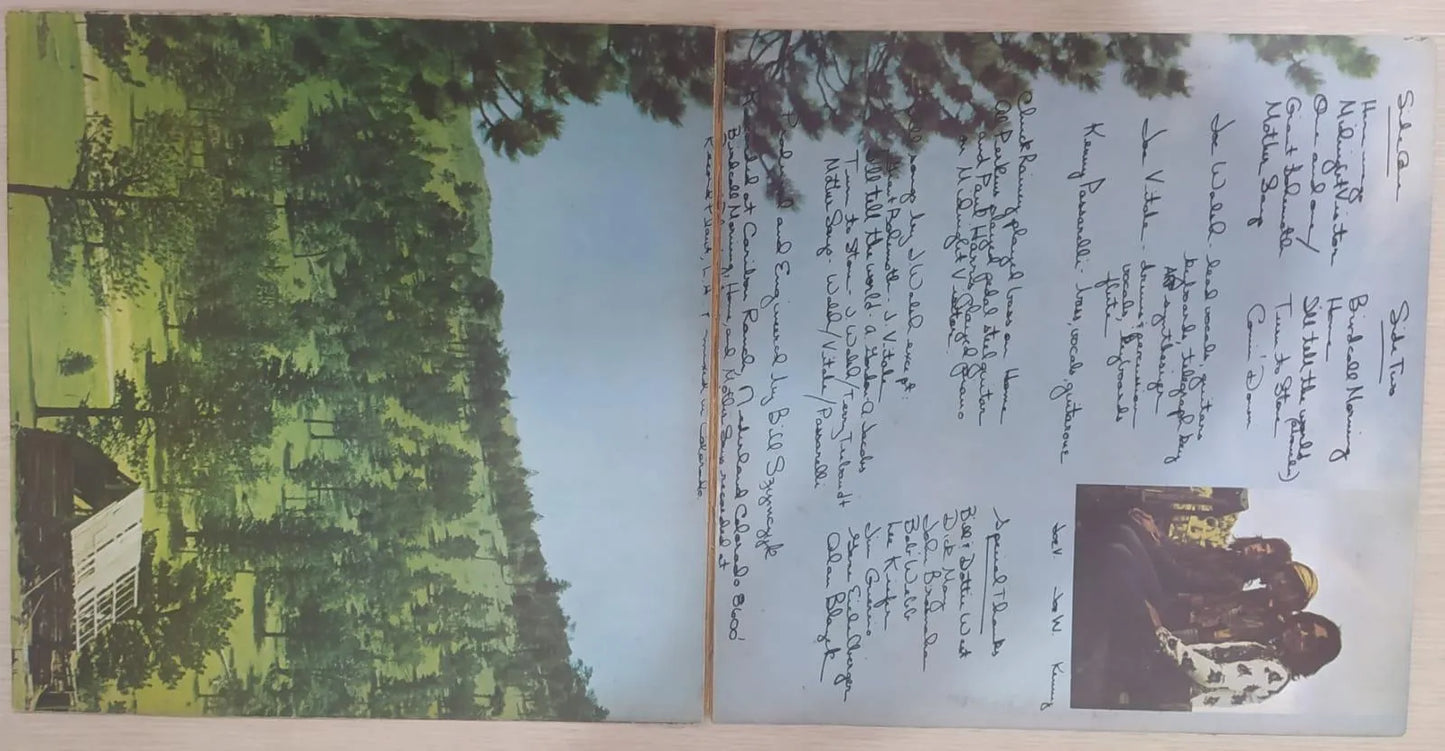 Side One
Mother Song
Midnight Visitor
One and one /
Giant Bohemoth
Mother Song
Side Two
Birdcall Morning
Home
I'll tell the world
Turn to Stone
Comin' Down
Joe Walsh - lead vocals, guitars
keyboards, telegraph key
synthesizer
Joe Vitale - drums & percussion
vocals, keyboards
flute
Kenny Passarelli - bass, vocals, guitarone
Joe V. Joe W. Kenny
Chuck Rainey played bass on Home
Al Perkins played pedal steel guitar
and Paul Harris played piano
on Midnight Visitor.
All songs by J Walsh except:
J. Vitale
I'll tell the world -
Turn to Stone - J Walsh / Terry Trebandt
Mother Song - Walsh / Vitale / Passarelli
Special Thanks
Bill & Dottie West
Dick May
John
Bob Webb
Lee Keifer
Jim
Gene Eichelberger
Alan Blazek
Produced and Engineered by Bill Szymczyk
Recorded at Caribou Ranch, Nederland Colorado 8600'
Birdcall Morning, Home, and Mother Song recorded at
Record Plant, L.A. & mixed in Colorado